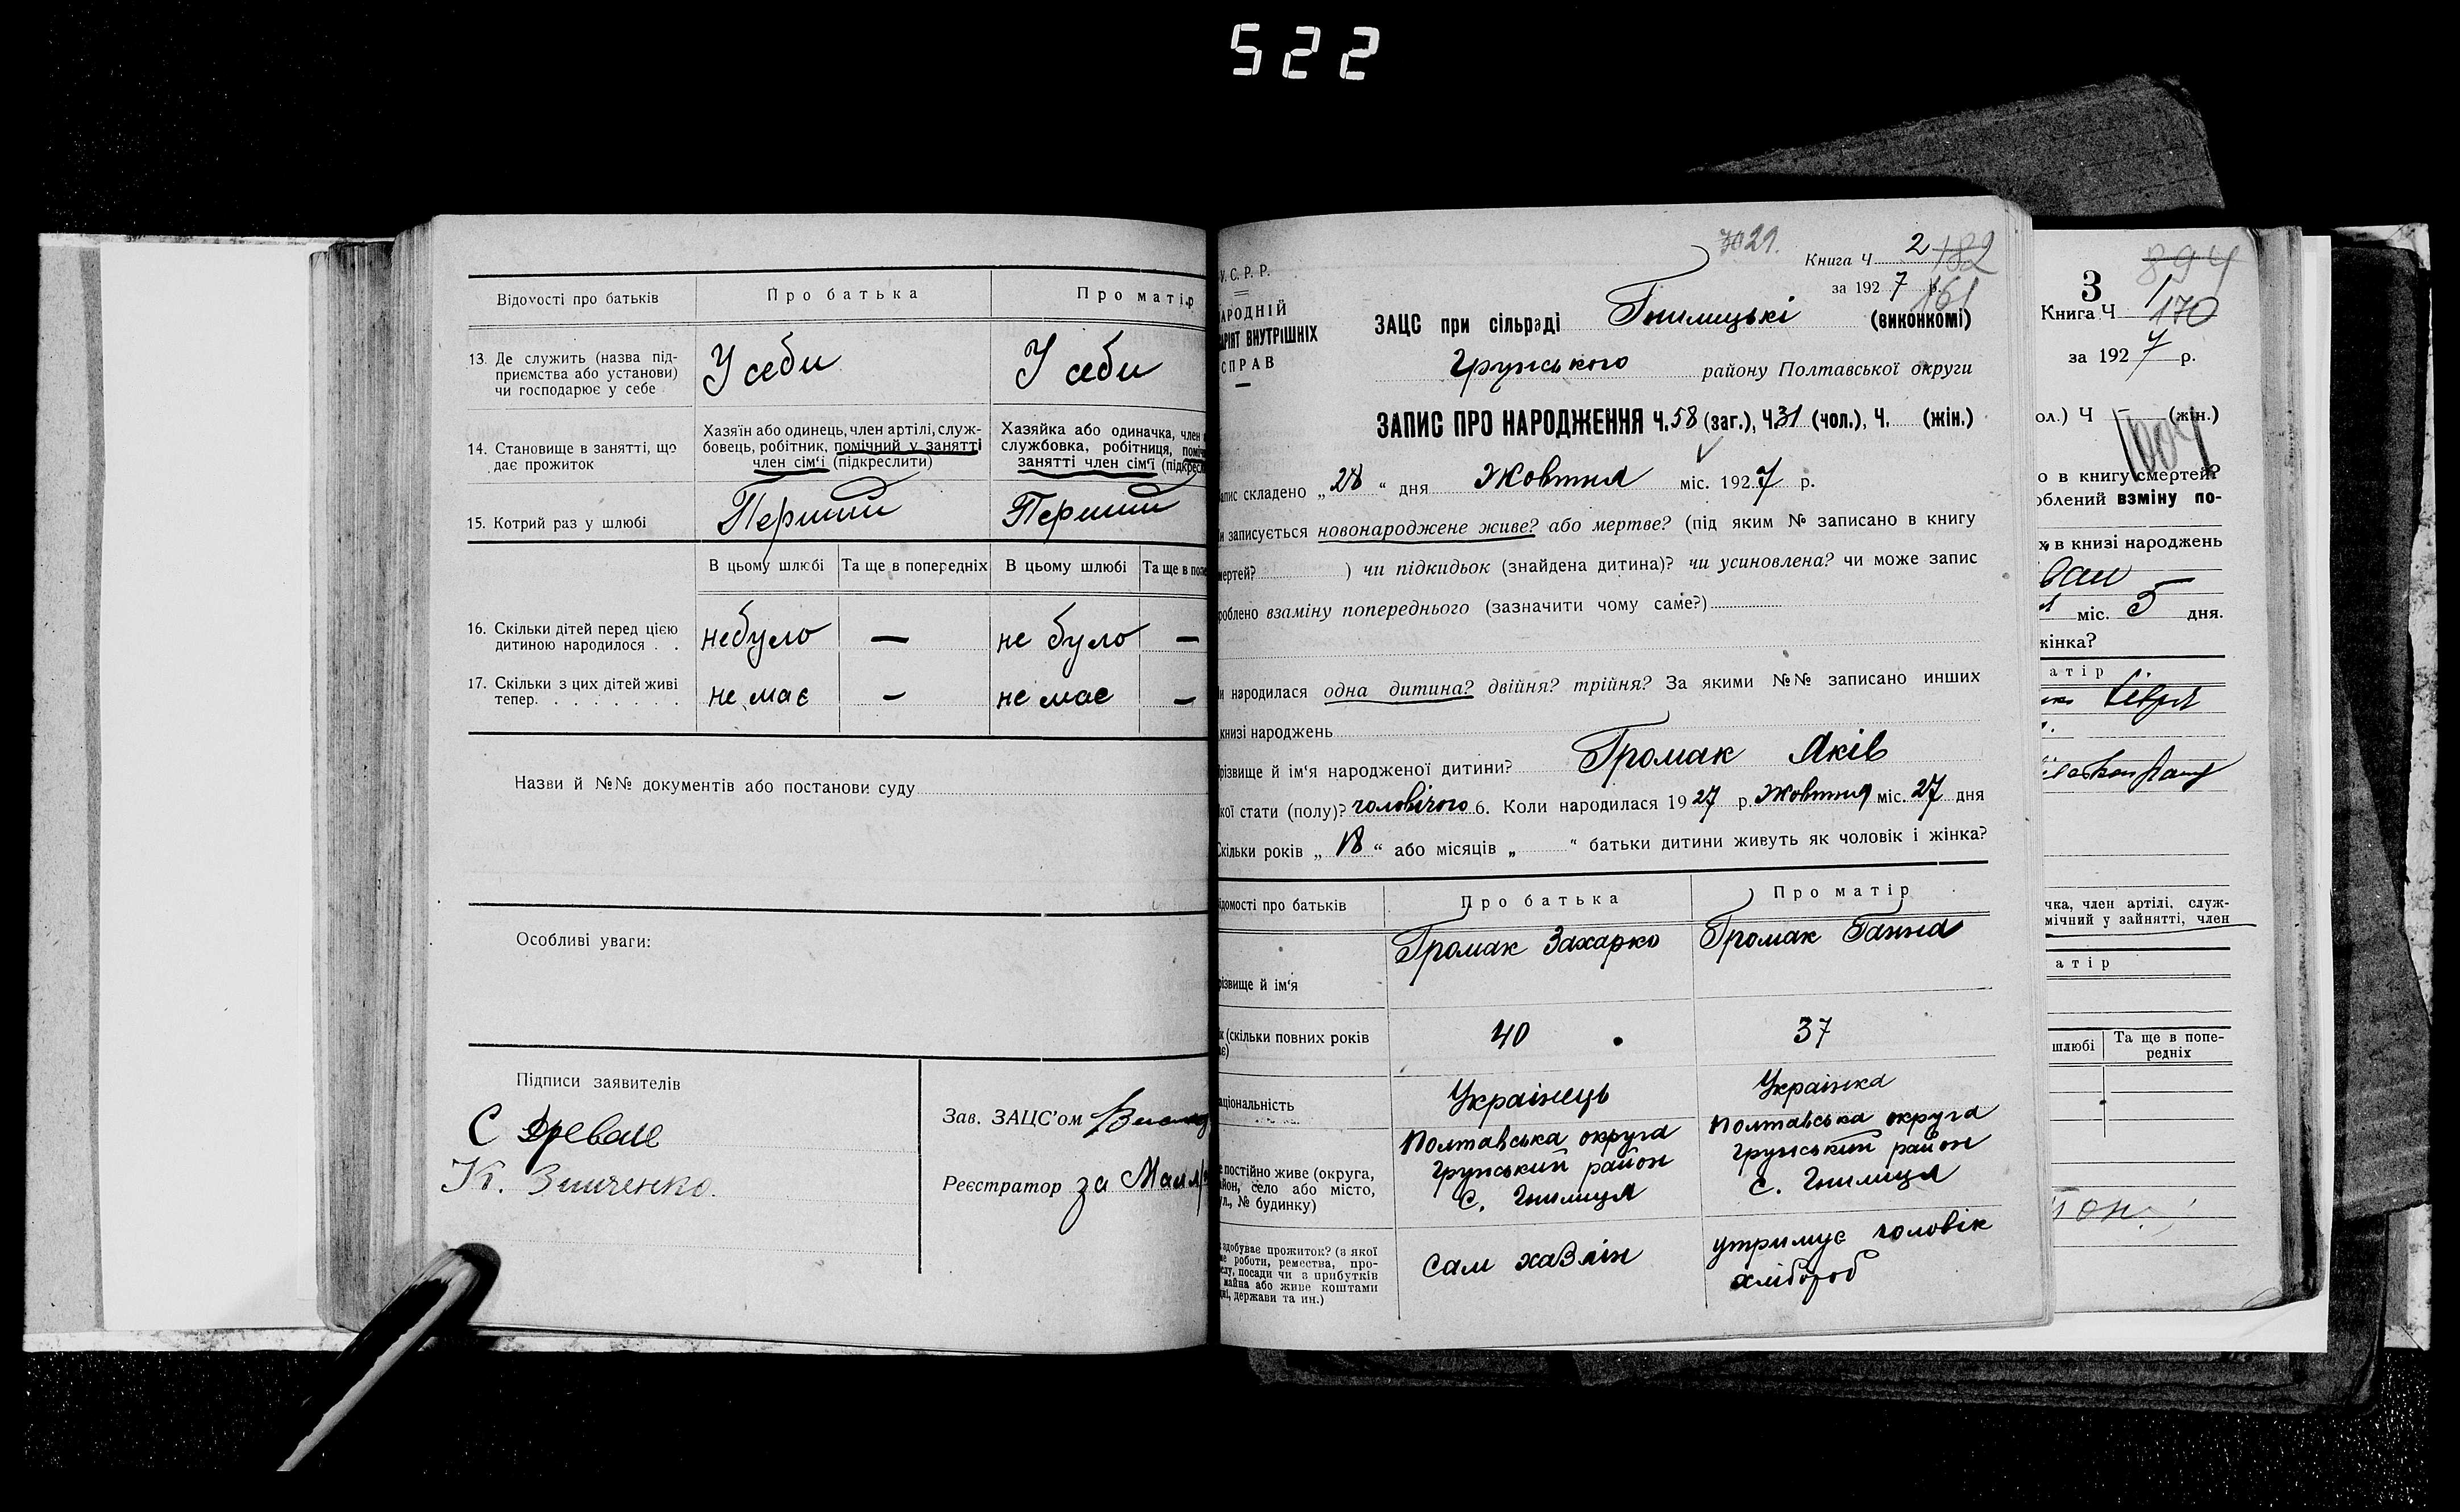 522
Відомості про батьків
Про батька
Про матір
13. Де служить (назва під-
приємства або установи)
чи господарює у себе
У себи
У себи
14. Становище в занятті, що
дає прожиток
Хазяїн або одинець, член артілі, служ-
бовець, робітник, помічний у занятті
член сім'ї (підкреслити)
Хазяйка або одиначка, член
службовка, робітниця,
занятті член сім'ї
15. Котрий раз у шлюбі
Перший
Перший
В цьому шлюбі
Та ще в попередніх
В цьому шлюбі
Та ще в
16. Скільки дітей перед цією
дитиною народилося . .
небуло
—
не було
—
17. Скільки з цих дітей живі
тепер. . . . . . . .
не має
—
не має
—
Назви й №№ документів або постанови суду
Особливі уваги:
Підписи заявителів
К. Зинченко.
Зав. ЗАЦС'ом
Реєстратор за
7021.
Книга Ч 2 182
за 1927 р. 161
У.С.Р.Р.
АРОДНІЙ
АРІЯТ ВНУТРІШНІХ
СПРАВ
ЗАЦС при сільраді Гнилицькі (виконкомі)
Грунського району Полтавської округи
ЗАПИС ПРО НАРОДЖЕННЯ Ч.58 (заг.), Ч.31 (чол.), Ч. (жін.)
апис складено „28“ дня Жовтня міс. 1927 р.
и записується новонароджене живе? або мертве? (під яким № записано в книгу
мертей? ) чи підкидьок (знайдена дитина)? чи усиновлена? чи може запис
роблено взаміну попереднього (зазначити чому саме?)
и народилася одна дитина? двійня? трійня? За якими №№ записано инших
книзі народжень
різвище й ім'я народженої дитини? Громак Яків
кої стати (полу)? чоловічого 6. Коли народилася 1927 р. Жовтня міс. 27 дня
Скільки років „18“ або місяців „ “ батьки дитини живуть як чоловік і жінка?
ідомості про батьків
Про батька
Про матір
різвище й ім'я
Громак Захарко
Громак Ганна
к (скільки повних років
ає)
40
37
аціональність
Українець
Українка
е постійно живе (округа,
йон, село або місто,
ул., № будинку)
Полтавська округа
Грунський район
с. Гнилиця
Полтавська округа
Грунський район
с. Гнилиця
здобуває прожиток? (з якої
ме роботи, ремества, про-
елу, посади чи з прибутків
майна або живе коштами
дні, держави та ин.)
Сам хазяїн
утримує чоловік
хлібороб
894
3
1
Книга Ч 170
за 1927 р.
ол.) Ч — (жін.)
1004
о в книгу смертей?
облений взміну по-
х в книзі народжень
міс. 5 дня.
жінка?
атір
чка, член артілі, служ-
мічний у зайнятті, член
атір
шлюбі
Та ще в попе-
редніх